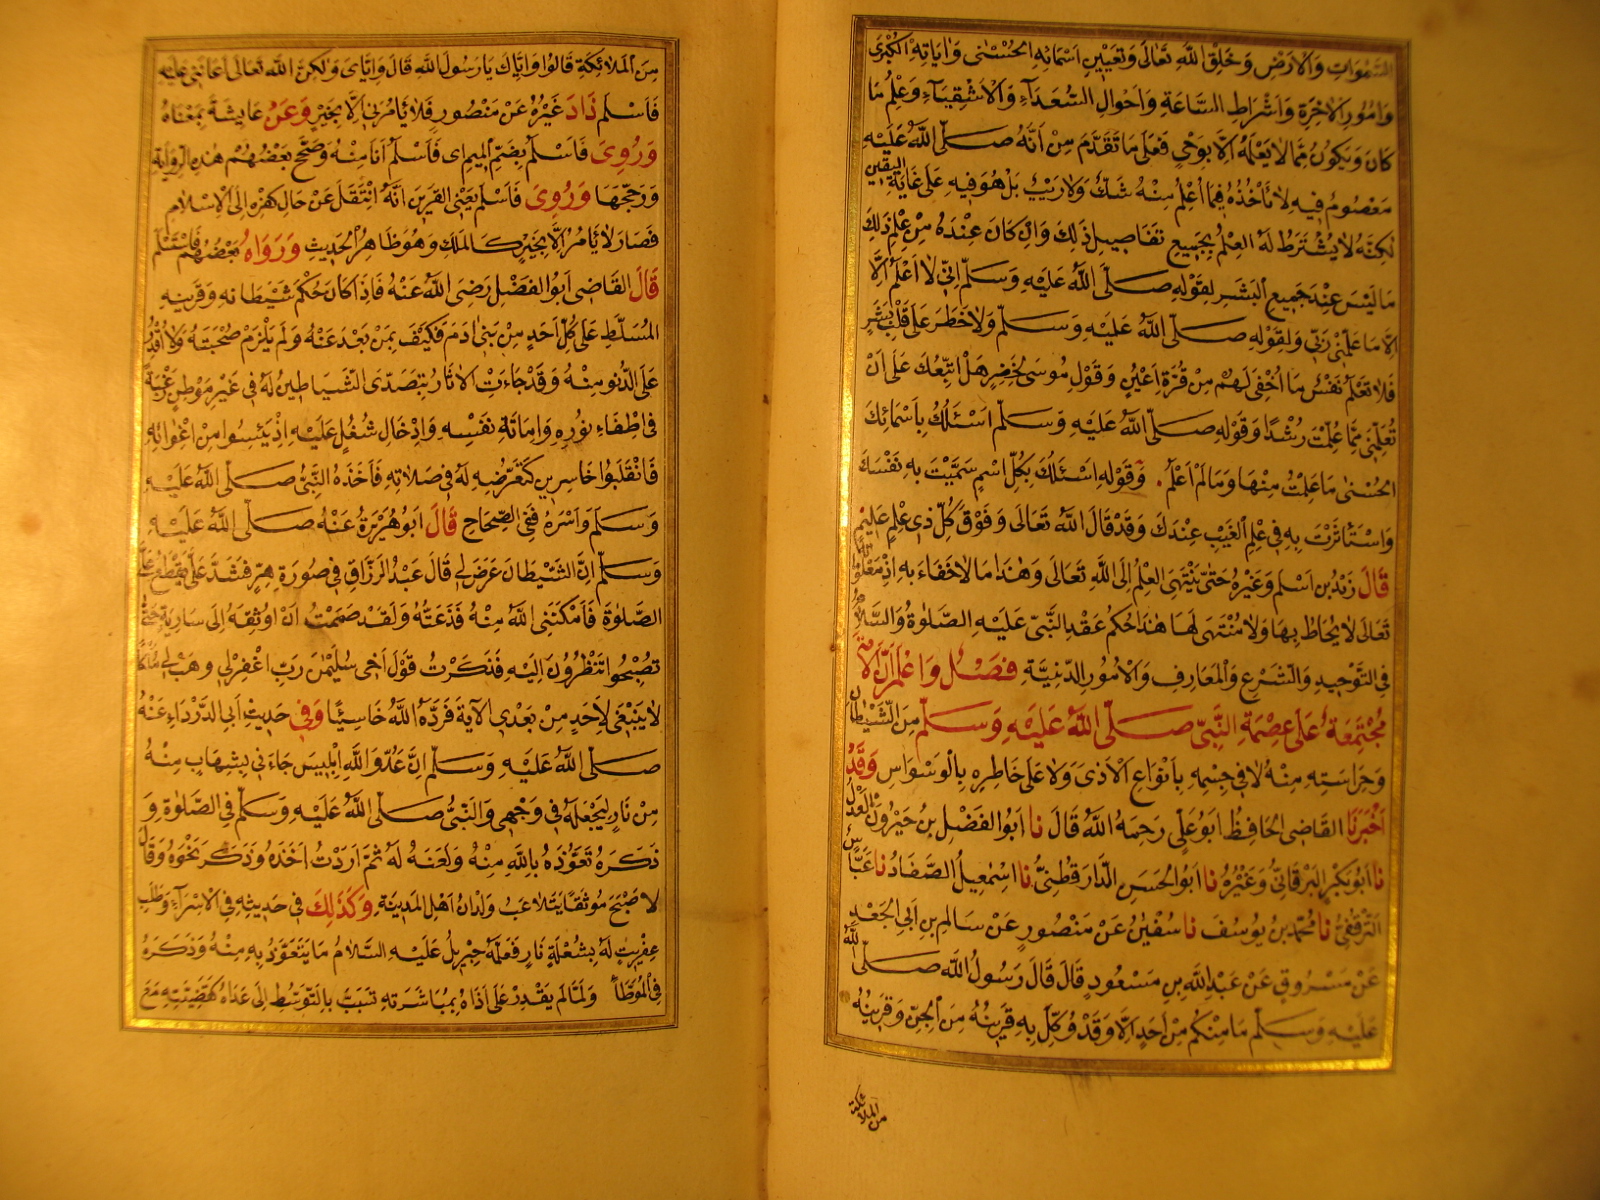 السموات والارض وخلق الله تعالى وتعيين اسمائه الحسنى واياته الكبرى
وامور الاخرة واشراط الساعة واحوال السعداء والاشقياء وعلم ما
كان ويكون مما لا يعلمه الا بوحي فعلى ما تقدم من انه صلى الله عليه
معصوم فيه لا يأخذه فيما اعلم منه شك ولا ريب بل هو فيه على غاية اليقين
لكنه لا يشترط له العلم بجميع تفاصيل ذلك وان كان عنده من علم ذلك
ما ليس عند جميع البشر لقوله صلى الله عليه وسلم اني لا اعلم الا
الا ما علمني ربي ولقوله صلى الله عليه وسلم ولا خطر على قلب بشر
فلا تعلم نفس ما اخفي لهم من قرة اعين وقول موسى لخضر هل اتبعك على ان
تعلمني مما علمت رشدا وقوله صلى الله عليه وسلم اسئلك باسمائك
الحسنى ما علمت منها وما لم اعلم. وقوله اسئلك بكل اسم سميت به نفسك
واستأثرت به في علم الغيب عندك وقد قال الله تعالى وفوق كل ذي علم عليم
قال زيد بن اسلم وغيره حتى ينتهى العلم الى الله تعالى وهذا ما لا خفاء به اذ معلوماته
تعالى لا يحاط بها ولا منتهى لها هذا حكم عقد النبي عليه الصلوة والسلام
في التوحيد والشرع والمعارف والامور الدينية فصل واعلم ان الامة
مجتمعة على عصمة النبي صلى الله عليه وسلم من الشيطان
وحراسته منه لا في جسمه بانواع الاذى ولا على خاطره بالوسواس وقد
اخبرنا القاضي الحافظ ابو علي رحمه الله قال نا ابو الفضل بن خيرون العدل
نا ابو بكر البرقاني وغيره نا ابو الحسن الدار قطني نا اسمعيل الصفار نا عباس
الترقفي نا محمد بن يوسف نا سفين عن منصور عن سالم بن ابي الجعد
عن مسروق عن عبد الله بن مسعود قال قال رسول الله صلى الله
عليه وسلم ما منكم من احد الا وقد وكل به قرينه من الجن وقرينه
من الملائكة
من الملائكة قالوا واياك يا رسول الله قال واياى ولكن الله تعالى اعانني عليه
فاسلم زاد غيره عن منصور فلا يأمرني الا بخير وعن عايشة بمعناه
وروى فاسلم بضم الميم اى فاسلم انا منه وصحح بعضهم هذه الرواية
ورجحها وروى فاسلم يعني القرين انه انتقل عن حال كفره الى الاسلام
فصار لا يأمر الا بخير كالملك وهو ظاهر الحديث ورواه بعضهم فاستسلم
قال القاضي ابو الفضل رضي الله عنه فاذا كان حكم شيطانه وقرينه
المسلط على كل احد من بني ادم فكيف بمن بعد عنه ولم يلزم صحبته ولا اقدر
على الدنو منه وقد جاءت الاثار بتصدى الشياطين له في غير موطن رغبة
في اطفاء نوره واماتة نفسه وادخال شغل عليه اذ يئسوا من اغوائه
فانقلبوا خاسرين كتعرضه له في صلاته فاخذه النبي صلى الله عليه
وسلم واسره ففي الصحاح قال ابو هريرة عنه صلى الله عليه
وسلم ان الشيطان عرض لي قال عبد الرزاق في صورة هر فشد علي يقطع علي
الصلوة فامكنني الله منه فذعته ولقد هممت ان اوثقه الى سارية حتى
تصبحوا تنظرون اليه فذكرت قول اخي سليمن رب اغفر لي وهب لي ملكا
لا ينبغي لاحد من بعدي الآية فرده الله خاسئا وفي حديث ابي الدرداء عنه
صلى الله عليه وسلم ان عدو الله ابليس جاءني بشهاب منه
من نار ليجعله في وجهي والنبي صلى الله عليه وسلم في الصلوة و
ذكره تعوذه بالله منه ولعنه له ثم اردت اخذه وذكر نحوه وقال
لاصبح موثقا يتلاعب ولدان اهل المدينة وكذلك في حديثه في الاسراء وطلب
عفريت له بشعلة نار فعلمه جبريل عليه السلام ما يتعوذ به منه وذكره
في الموطأ ولما لم يقدر على اذاه بمباشرته تسبب بالتوسط الى عداه كقضيته مع